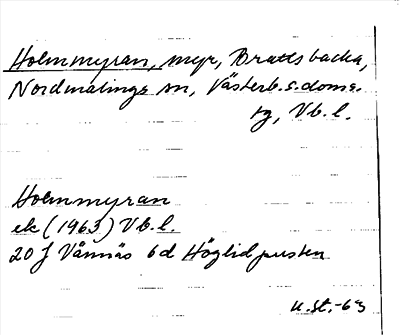 Holmmyran, myr, Brattsbacka,
Nordmalings sn, Västerb. s. doms.
tg, Vb. l.
Holmmyran
ek (1963) Vb. l.
20 J Vännäs 6d Höglidpusten
u. st. -63